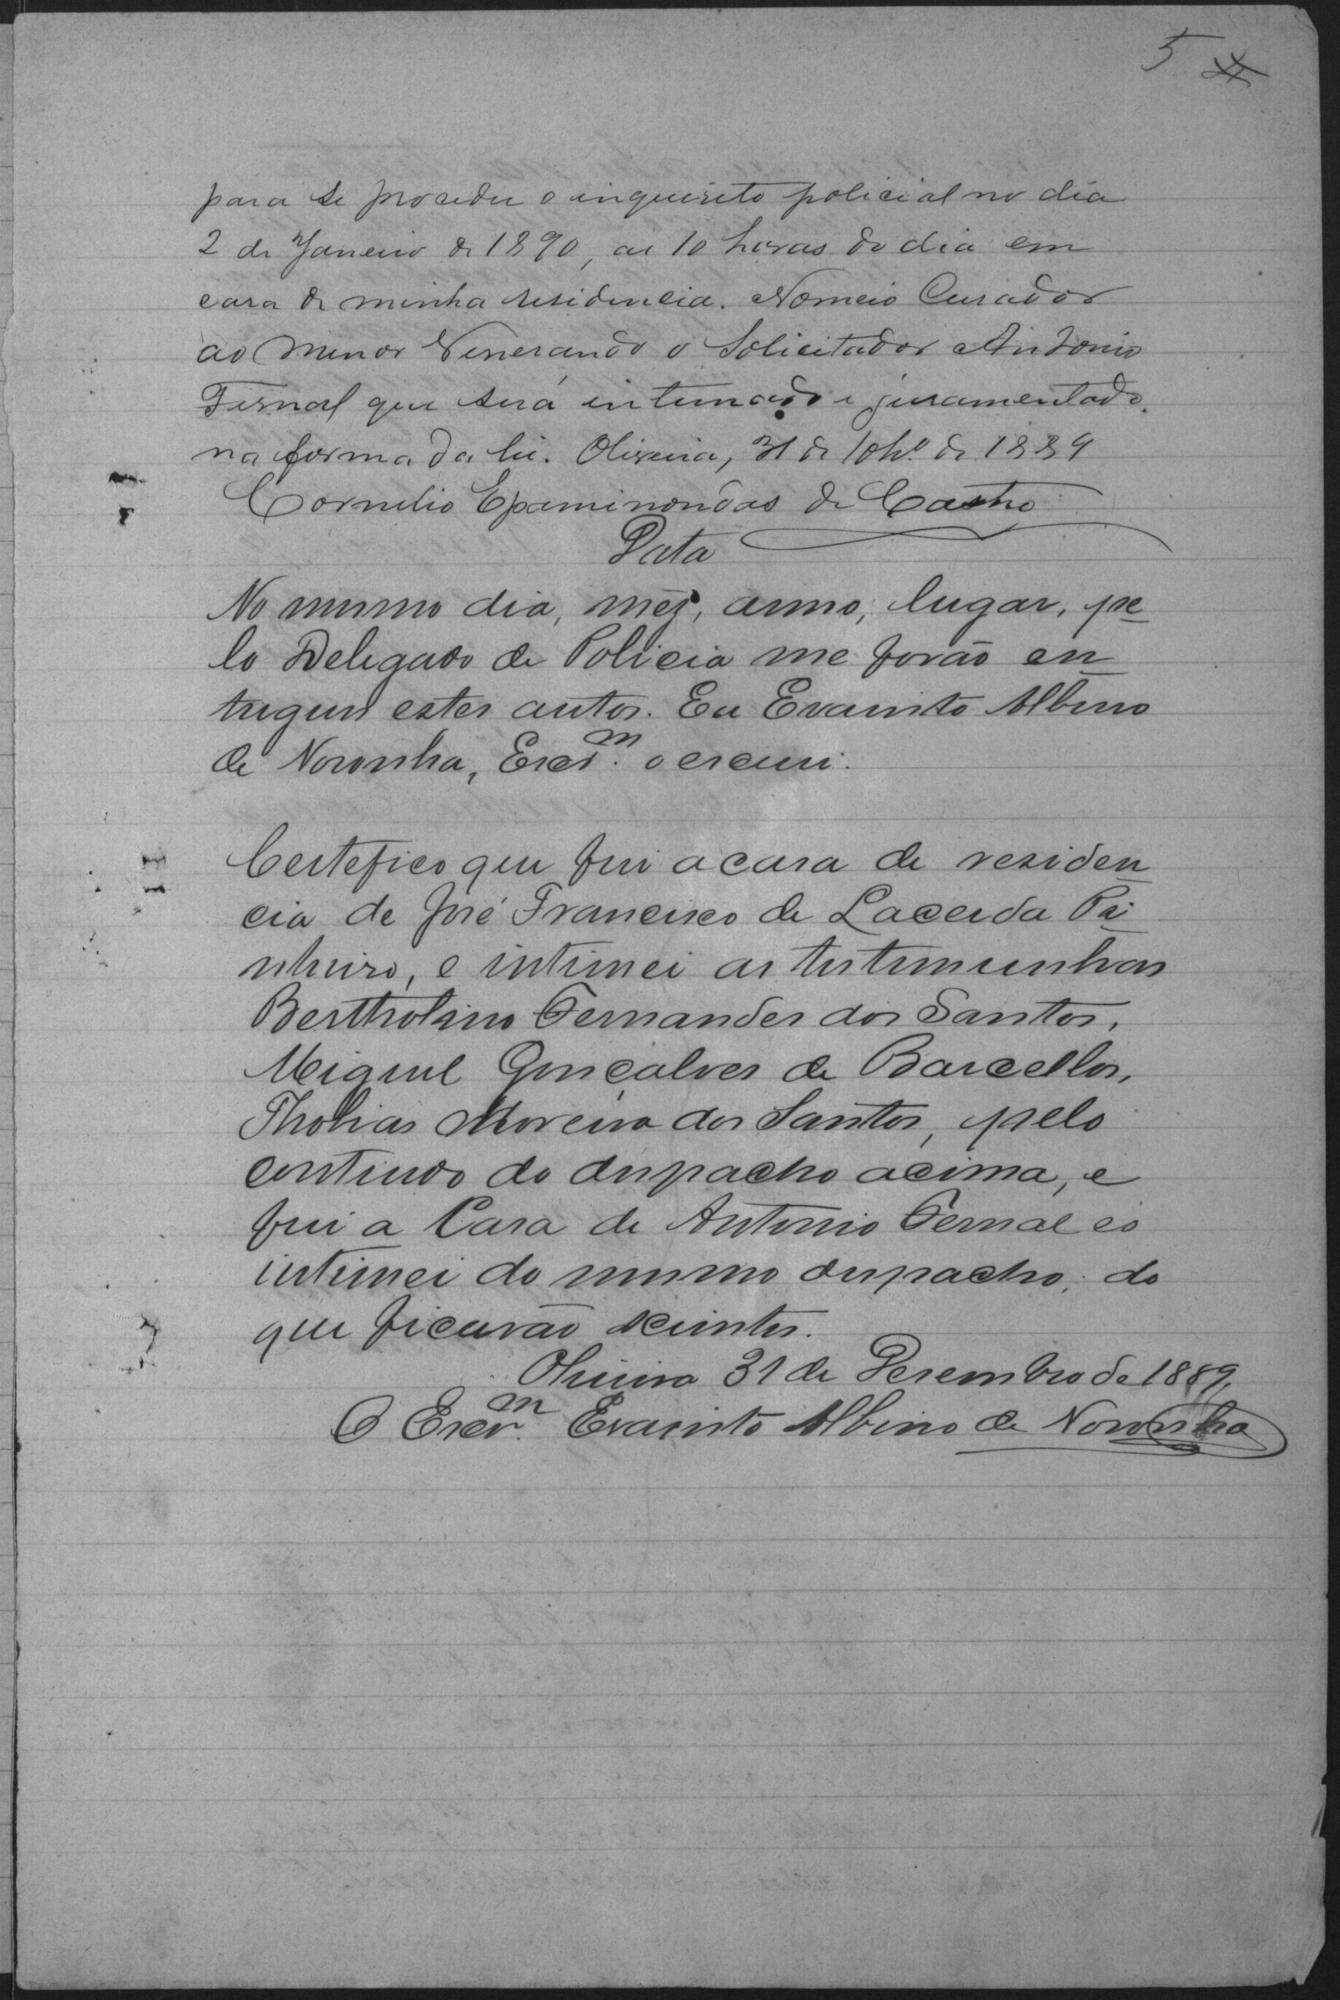 5
para se proceder o inquerito policial no dia
2 de Janeiro de 1890, as 10 horas do dia em
casa de minha residencia. Nomeio Curador
ao menor Venerando o Solicitador Antonio
Fernal que será intimado e juramentado
na forma da lei. Oliveira, 31 de 10br.º de 1889
Cornelio Epaminondas de Castro
Data
No mesmo dia, mez, anno, lugar, pe
lo Delegado de Policia me forão en
tregues estes autos. Eu Evaristo Albino
de Noronha, Escr.m o escrevi.
Certefico que fui a casa de residen
cia de José Francisco de Lacerda Pi
nheiro, e intimei as testemunhas
Bertholino Fernandes dos Santos,
Miguel Gonçalves de Barcellos,
Thobias Moreira dos Santos, pelo
contiudo do despacho acima, e
fui a Casa de Antonio Fernal e o
intimei do mesmo despacho, do
que ficarão scientes.
Oliveira 31 de Desembro de 1889,
O Escr.m Evaristo Albino de Noronha